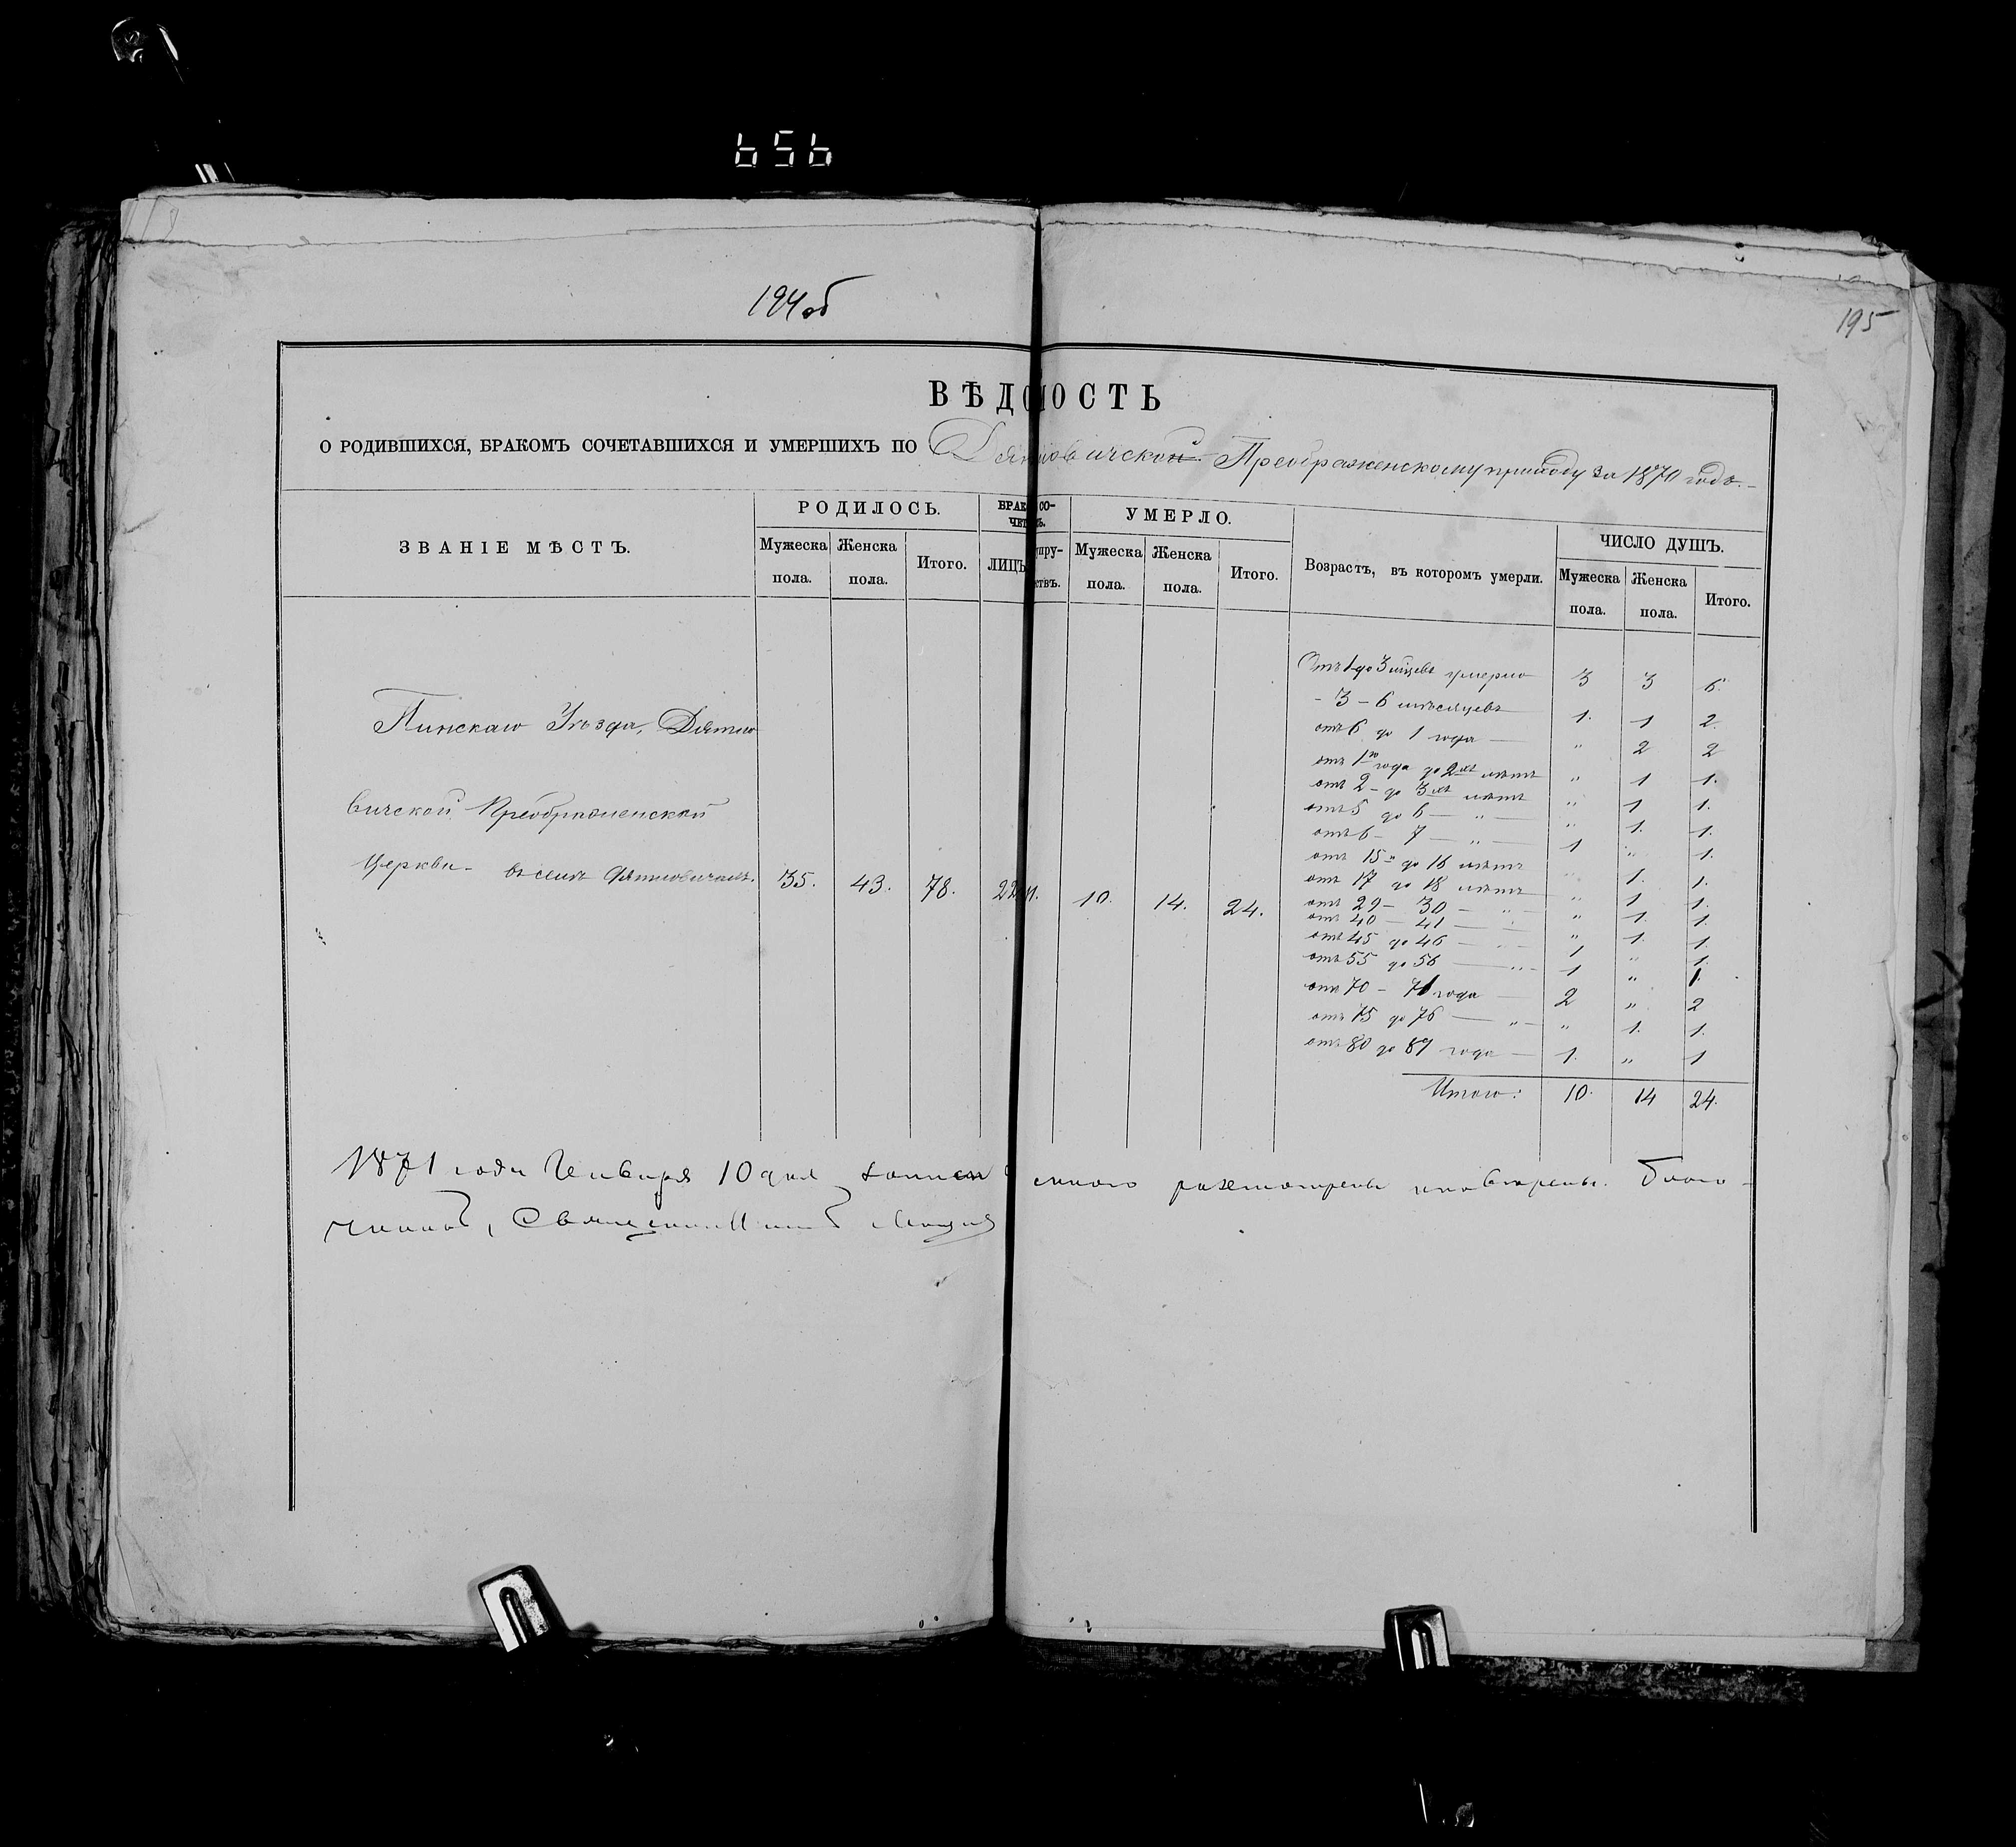 656
194 об
195
ВѢДОМОСТЬ
О РОДИВШИХСЯ, БРАКОМЪ СОЧЕТАВШИХСЯ И УМЕРШИХЪ ПО Дятловичской Преображенскому приходу за 1870 годъ.
ЗВАНІЕ МѢСТЪ. РОДИЛОСЬ. БРАК СО- УМЕРЛО. Возрастъ, въ которомъ умерли. ЧИСЛО ДУШЪ.
Мужеска пола. Женска пола. Итого. ЛИЦЪ Мужеска пола. Женска пола. Итого. Мужеска пола. Женска пола. Итого.
Пинскаго Уѣзда, Дятло
вичской Преображенской
Церкви - въ селѣ Дятловичахъ. 35. 43. 78. 22 11. 10. 14. 24.
Отъ 1 до 3 мцевъ умерло 3 3 6.
- 3 - 6 мѣсяцевъ 1. 1 2.
отъ 6 до 1 года — " 2 2
отъ 1го года до 2хъ лѣтъ " 1 1.
отъ 2 - до 3хъ лѣтъ " 1 1.
отъ 5 до 6 — " — " 1. 1.
отъ 6 - 7 — " — 1 " 1.
отъ 15 до 16 лѣтъ " 1. 1.
отъ 17 до 18 лѣтъ " 1 1.
отъ 29 - 30 — " — " 1. 1.
отъ 40 - 41 — " 1. 1.
отъ 45 до 46 — 1 " 1.
отъ 55 до 56 — " - 1 " 1.
отъ 70 - 71 года 2 " 2
отъ 75 до 76 — " - " 1. 1.
отъ 80 до 81 года — 1. " 1
Итого: 10. 14 24.
1871 года Генваря 10 дня мною разсмотрены Благо-
чинный, Священникъ